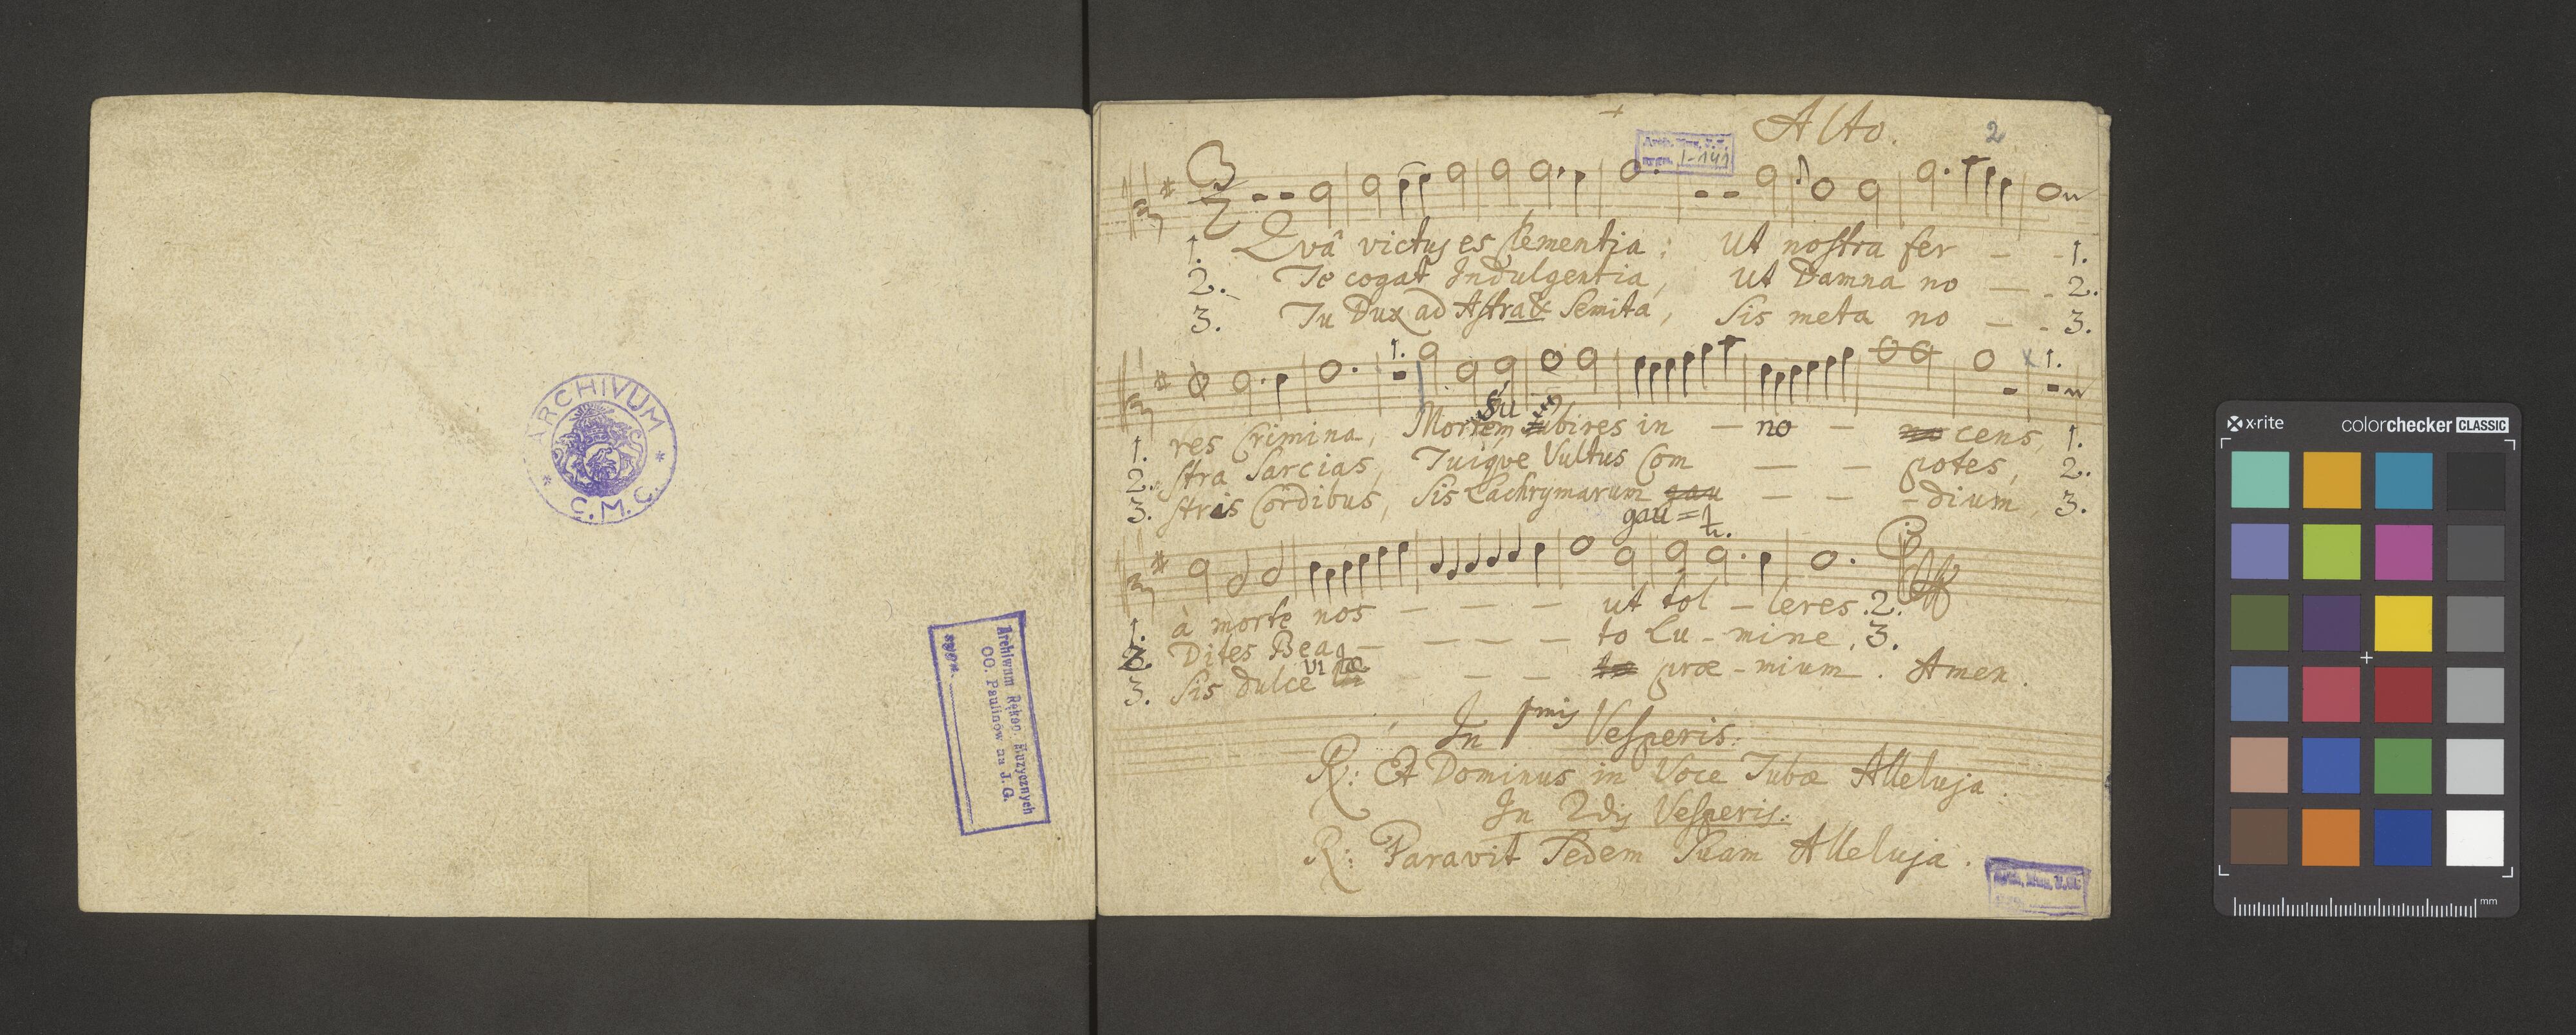 ARCHIVUM
* C.M.C. *
Archiwum Rękop. Muzycznych
OO. Paulinów na J.G.
sygn.
Alto.
2
Arch. Muz. J.G.
sygn. I-141
1. Qvâ victus es Clementia: Ut nostra fer - - 1.
2. Te cogat Indulgentia, Ut Damna no - - 2.
3. Tu Dux ad Astra & Semita, Sis meta no - - 3.
1. 1.
su
1. res Crimina, Mortem subires in - no - no cens, 1.
2. stra Sarcias, Tuiqve Vultus Com - - potes, 2.
3. stris Cordibus, Sis Lachrymarum gau - - - dium, 3.
gau =
1. à morte nos - - - ut tol - leres. 2.
2. Dites Bea - - - - to Lu - mine. 3.
3. Sis dulce vi tæ - - - præ - mium. Amen.
In 1mis Vesperis:
R: Et Dominus in Voce Tubæ Alleluja.
In 2dis Vesperis:
R: Paravit Sedem Suam Alleluja.
x·rite colorchecker CLASSIC
mm